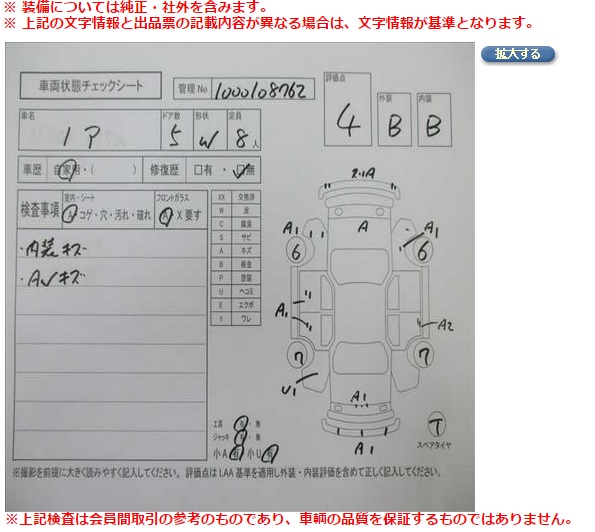 ※ 装備については純正・社外を含みます。
※ 上記の文字情報と出品票の記載内容が異なる場合は、文字情報が基準となります。
拡大する
車両状態チェックシート
管理No 1000108762
評価点 4
外装 B
内装 B
車名
ドア数 5
形状 W
定員 8人
車歴 自家用・( ) 修復歴 □有・☑無
検査事項
室内・シート
A コゲ・穴・汚れ・破れ
フロントガラス
A X 要す
・内装キズ
・AWキズ
XX 交換済
W 波
C 腐食
S サビ
A キズ
B 板金
P 塗装
U ヘコミ
E エクボ
Y ワレ
A
A1
A1
6
6
A1
A2
7
7
U1
A1
A1
T
スペアタイヤ
工具 有・無
ジャッキ 有・無
小A 有 小U 有
※撮影を前提に大きく読みやすく記入してください。評価点はLAA基準を適用し外装・内装評価を含めて正しく記入してください。
※上記検査は会員間取引の参考のものであり、車輌の品質を保証するものではありません。